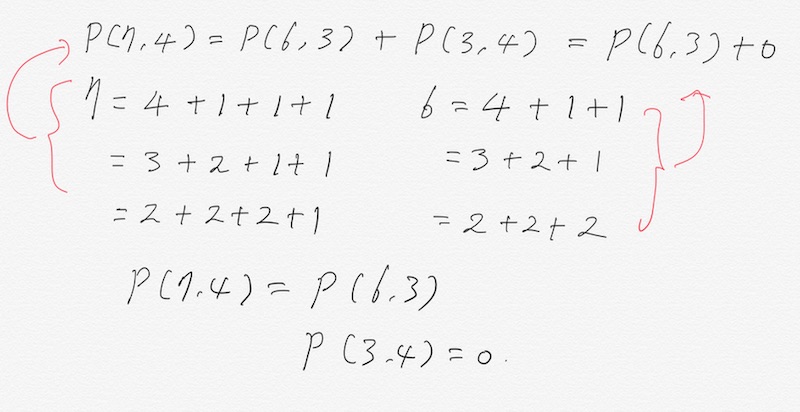 P(7,4) = P(6,3) + P(3,4) = P(6,3) + 0
7 = 4 + 1 + 1 + 1 6 = 4 + 1 + 1
= 3 + 2 + 1 + 1 = 3 + 2 + 1
= 2 + 2 + 2 + 1 = 2 + 2 + 2
P(7,4) = P(6,3)
P(3,4) = 0.